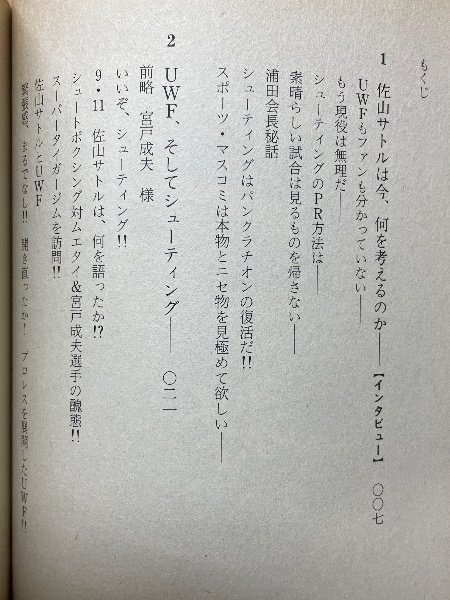 もくじ
1 佐山サトルは今、何を考えるのか——【インタビュー】 〇〇七
UWFもファンも分かっていない——
もう現役は無理だ——
シューティングのPR方法は——
素晴らしい試合は見るものを帰さない——
浦田会長秘話
シューティングはパンクラチオンの復活だ!!
スポーツ・マスコミは本物とニセ物を見極めて欲しい——
2 UWF、そしてシューティング—— 〇二一
前略 宮戸成夫 様
いいぞ、シューティング!!
9・11 佐山サトルは、何を語ったか!?
シュートボクシング対ムエタイ&宮戸成夫選手の醜態!!
スーパータイガージムを訪問!!
佐山サトルとUWF
緊張感、まるでなし!! 開き直ったか! プロレスを展開したUWF!!